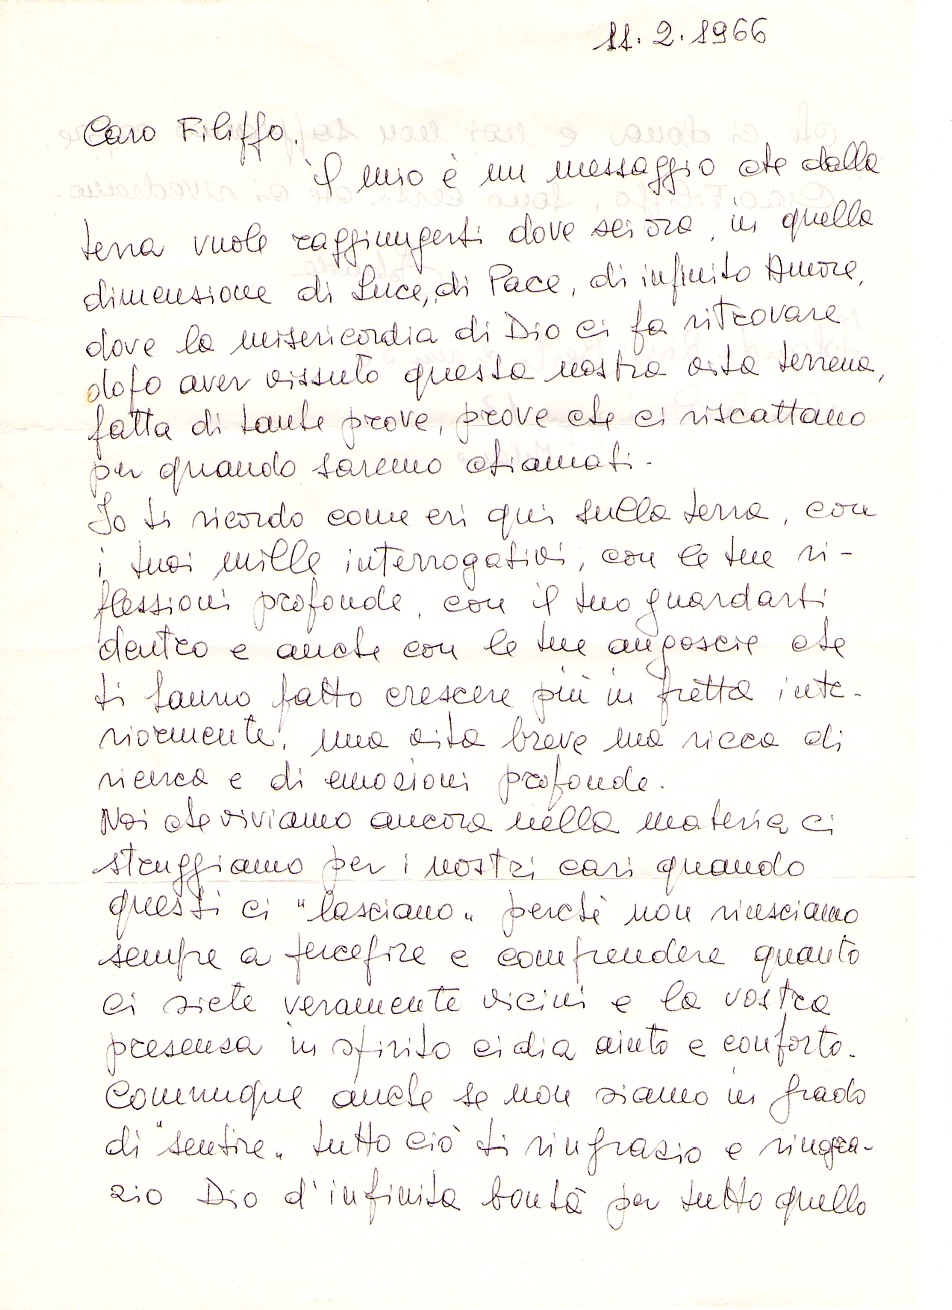 11.2.1966
Caro Filippo.
il mio è un messaggio che dalla
terra vuole raggiungerti dove sei ora, in quella
dimensione di Luce, di Pace, di infinito Amore,
dove la misericordia di Dio ci fa ritrovare
dopo aver vissuto questa nostra vita terrena,
fatta di tante prove, prove che ci riscattano
per quando saremo chiamati.
Io ti ricordo come eri qui sulla terra, con
i tuoi mille interrogativi, con le tue ri-
flessioni profonde, con il tuo guardarti
dentro e anche con le tue angoscie che
ti hanno fatto crescere più in fretta inte-
riormente! una vita breve ma ricca di
ricerca e di emozioni profonde.
Noi che viviamo ancora nella materia, ci
struggiamo per i nostri cari quando
questi ci "lasciano" perchè non riusciamo
sempre a percepire e comprendere quanto
ci siete veramente vicini e la vostra
presenza in spirito ci dia aiuto e conforto.
Comunque anche se non siamo in grado
di "sentire" tutto ciò ti ringrazio e ringra-
zio Dio d'infinita bontà per tutto quello